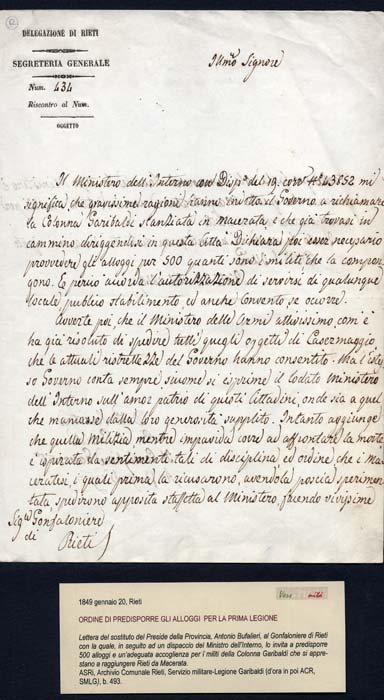 DELEGAZIONE DI RIETI
SEGRETERIA GENERALE
Num. 434
Riscontro al Num.
OGGETTO
Illmo Signore
Il Ministero dell'Interno con Disp.o del 19. corr.e N.o 43852 mi
significa, che gravissime ragioni hanno indotto il Governo a richiamare
la Colonna Garibaldi stanziata in Macerata, e che già trovasi in
cammino diriggendosi in questa Città. Dichiara poi esser necessario
provvedere gli alloggi per 500 quanti sono i militi che la compon-
gono. E perciò accorda l'autorizzazione di servirsi di qualunque
locale pubblico stabilimento ed anche Convento se occorre.
Avverte poi, che il Ministero delle Armi attivissimo com'è
ha già risoluto di spedire tutti quegli oggetti di Casermaggio,
che le attuali ristrettezze del Governo hanno consentito. Ma l'istes-
so Governo conta sempre siccome si esprime il lodato Ministero
dell'Interno sull'amor patrio di questi Cittadini, onde sia a quel
che mancasse dalla loro generosità supplito. Intanto aggiunge
che quella Milizia mentre impavida corre ad affrontare la morte
è ispirata da sentimenti tali di disciplina ed ordine, che i Ma-
ceratesi, i quali prima la ricusarono, avendola poscia sperimen-
tata, spedirono apposita staffetta al Ministero, facendo vivissime
Sig.r Gonfaloniere
di
Rieti
1849 gennaio 20, Rieti
ORDINE DI PREDISPORRE GLI ALLOGGI PER LA PRIMA LEGIONE
Lettera del sostituto del Preside della Provincia, Antonio Bufalieri, al Gonfaloniere di Rieti
con la quale, in seguito ad un dispaccio del Ministro dell'Interno, lo invita a predisporre
500 alloggi e un'adeguata accoglienza per i militi della Colonna Garibaldi che si appre-
stano a raggiungere Rieti da Macerata.
ASRi, Archivio Comunale Rieti, Servizio militare-Legione Garibaldi (d'ora in poi ACR,
SMLG), b. 493.